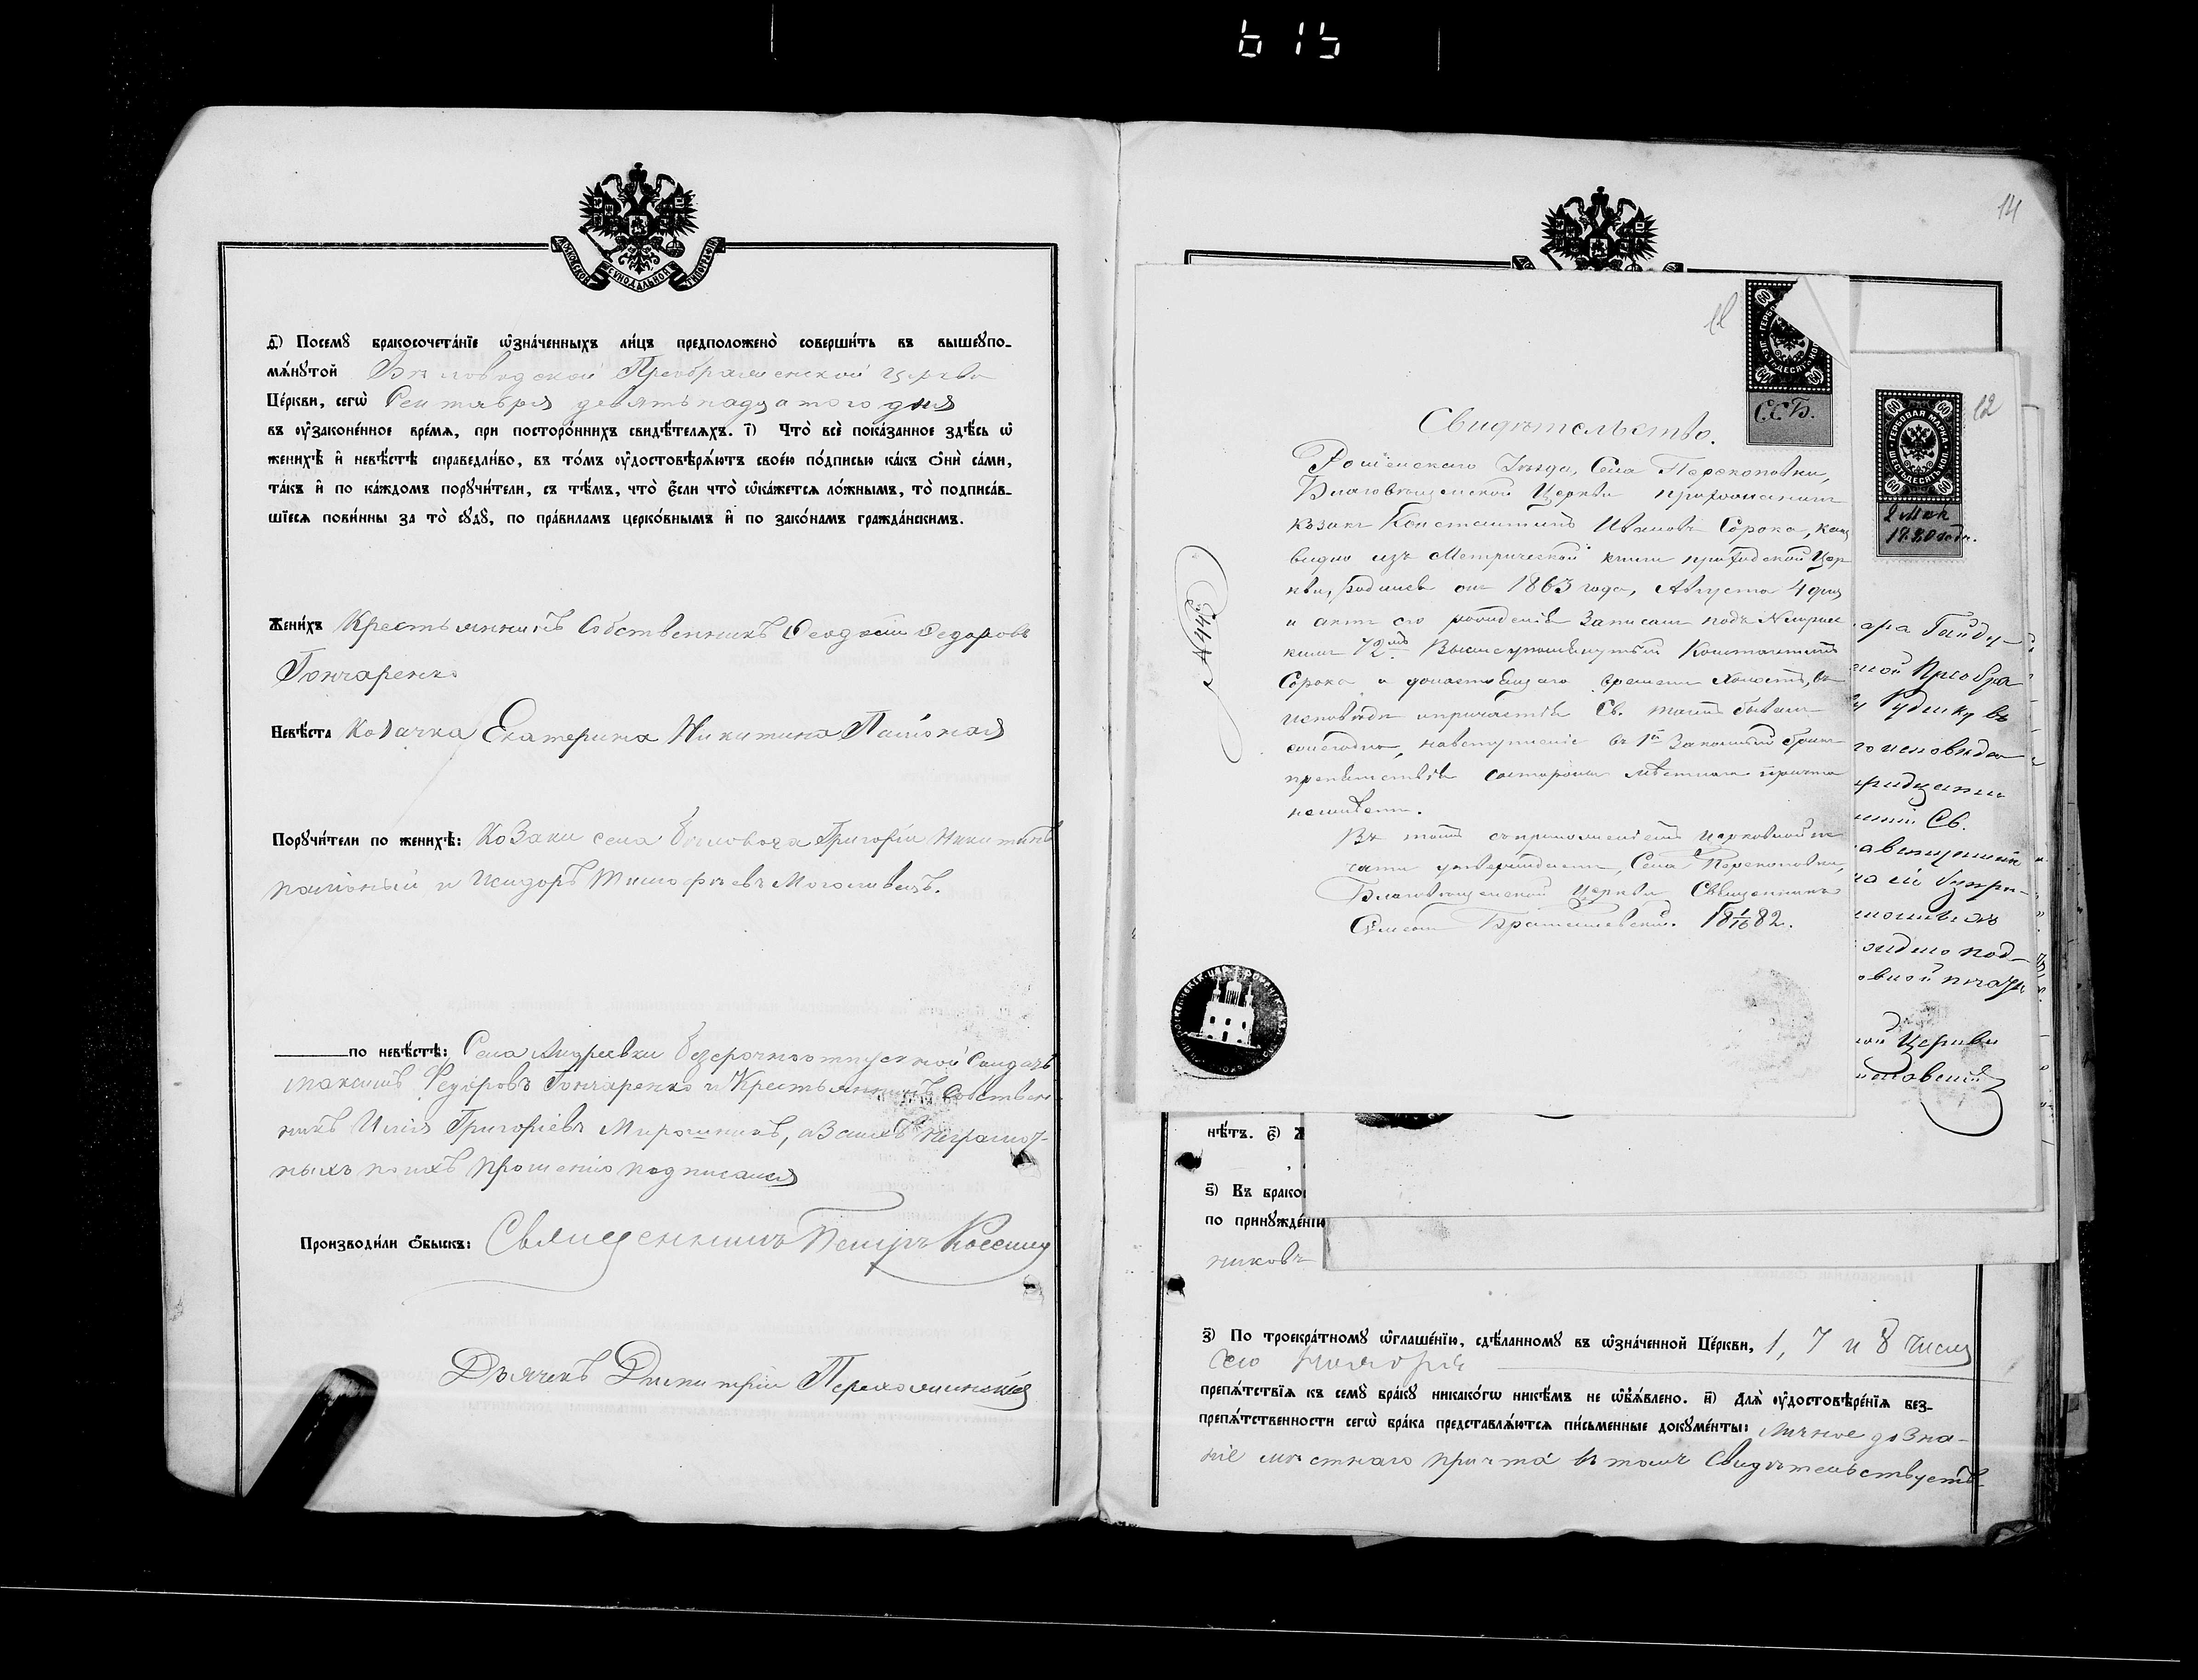 615
МОСКОВСКОЙ СѴНОДАЛЬНОЙ ТИПОГРАФІИ
д҃) Посемꙋ бракосочета́нїе ѡ҆зна́ченныхъ ли́цъ предположено̀ соверши́ть въ вышеꙋпо-
мѧ́нꙋтой Бѣловодской Преображенской церкви
Це́ркви, сегѡ̀ Сентября девятьнадцатого дня
въ ᲂу҆законе́нное вре́мѧ, при посторо́ннихъ свидѣ́телѧхъ. і҃) Что̀ всѐ пока́занное здѣ́сь ѡ҆
женихѣ̀ и҆ невѣ́стѣ справедли́во, въ то́мъ ᲂу҆достовѣрѧ́ютъ свое́ю по́дписью ка́къ ѻ҆нѝ са́ми,
та́къ и҆ по ка́ждомъ порꙋчи́тели, съ тѣ́мъ, что̀ є҆́сли что̀ ѡ҆ка́жетсѧ ло́жнымъ, то̀ подписа́в-
шїесѧ пови́нны за то̀ сꙋдꙋ̀, по пра́виламъ церко́внымъ и҆ по зако́намъ гражда́нскимъ.
Жени́хъ Крестьянинъ Собственникъ Феодосій Федоровъ
Гончаренко
Невѣ́ста Козачка Екатерина Никитина
Порꙋчи́тели по женихѣ̀: Козаки села Бѣловода Григорій Никитинъ
и Исидоръ Тимофѣевъ
по невѣ́стѣ: Села Андреевки безсрочноотпускной Солдатъ
Максимъ Федоровъ Гончаренко и Крестьянинъ Собствен-
никъ Илія Григоріевъ Мирошникъ, а за ихъ неграмот-
ныхъ по ихъ прошенію подписался
Производи́ли ѻ҆́быскъ: Священникъ Петръ
Дьячекъ Димитрій
14
11
ГЕРБОВАЯ
ШЕСТЬДЕСЯТЪ
60
С.С.Б.
Свидѣтельство.
Роменскаго Уѣзда, Села Перекоповки,
Благовѣщенской Церкви прихожанинъ
козакъ Константинъ Ивановъ Сорока, какъ
видно изъ Метрической книги приходской Цер
кви, родился онъ 1863 года, Августа 4 дня
и актъ его рожденія записанъ подъ №
72мъ. Вышеупомянутый Константинъ
Сорока и донастоящаго времени холостъ, въ
исповѣди и причастіи Св. таинъ бываетъ
ежегодно, навступленіе въ 1й законный бракъ
препятствія состороны мѣстнаго причта
неимѣетъ.
Въ томъ съприложеніемъ церковной пе
чати утверждаетъ, Села Перекоповки,
Благовѣщенской Церкви Священникъ
Симеонъ 18 1/10 82.
№ 44й
12
ГЕРБОВАЯ МАРКА
ШЕСТЬДЕСЯТЪ КОП.
60
ара Гайду-
ной Преобра
у Рудику въ
го исповѣди
ридцати
Св.
под-
овной печать
ой Церкви
нѣ́тъ. є҃) Ж
ѕ҃) Къ брако
по принꙋжде́нїю
никовъ
з҃) По троекра́тномꙋ ѡ҆глаше́нїю, сдѣ́ланномꙋ въ ѡ҆зна́ченной Це́ркви, 1, 7 и 8 числа
сего
препѧ́тствїѧ къ семꙋ̀ бра́кꙋ никако́гѡ никѣ́мъ не ѡ҆бъѧ́влено. и҃) Длѧ̀ ᲂу҆достовѣре́нїѧ без-
препѧ́тственности сегѡ̀ бра́ка представлѧ́ютсѧ пи́сьменные докꙋме́нты: личное дозна-
ніе мѣстнаго причта въ томъ свидѣтельствуетъ